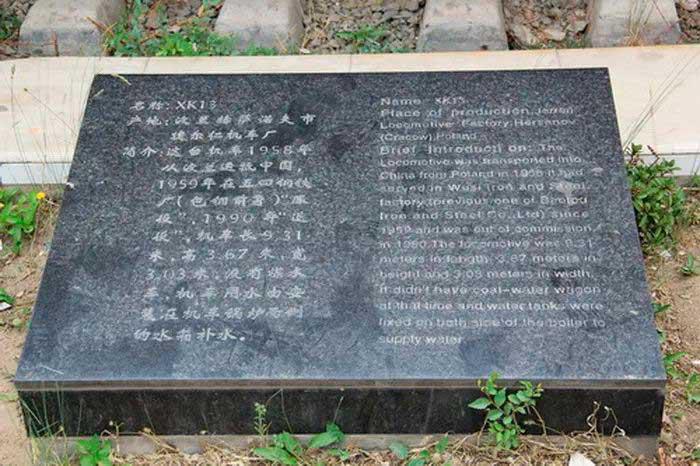 名称:XK13
产地:波兰赫萨诺夫市
捷尔仁机车厂
简介:这台机车1958年
从波兰运抵中国,
1959年在五四钢铁
厂(包钢前身)"服
役",1990年"退
役",机车长9.31
米,高3.67米,宽
3.03米,没有煤水
车,机车用水由安
装在机车锅炉两侧
的水箱补水。
Name XK13
Place of production Jerren
Locomotive Factory,Hersanov
(Cracow),Poland
Brief Introduction: The
Locomotive was transported into
China from Poland in 1958.It had
served in Wusi Iron and Steel
factory (previous one of Baotou
Iron and Steel Co.,Ltd) since
1959 and was out of commission
in 1990.The locomotive was 9.31
meters in length, 3.67 meters in
height and 3.03 meters in width.
It didn't have coal-water wagon
at that time and water tanks were
fixed on both side of the boiler to
supply water